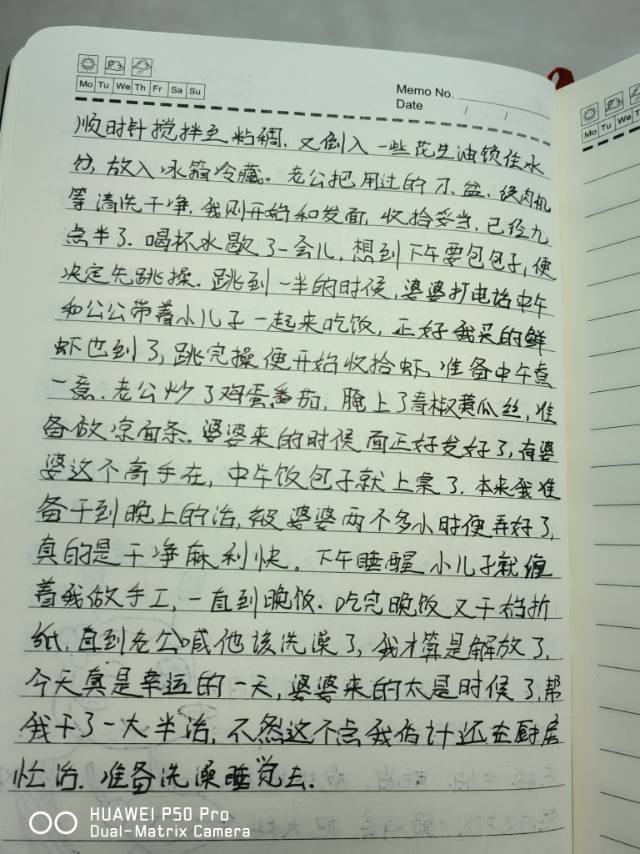 Mo Tu We Th Fr Sa Su
Memo No.
Date / /
Mo Tu We Th
顺时针搅拌至粘稠、又倒入一些花生油锁住水
分,放入冰箱冷藏。老公把用过的不盆、绞肉机
等清洗干净,我刚开始和发面,收拾妥当,已经九
点半了.喝杯水歇了一会儿,想到下午要包包子,便
决定先跳操.跳到一半的时候,婆婆打电话中午
和公公带着小儿子一起来吃饭,正好我买的鲜
虾也到了,跳完操便开始收拾虾,准备中午煮
一煮.老公炒了鸡蛋番茄,腌上了青椒黄瓜丝,准
备做凉面条.婆婆来的时候面正好发好了,有婆
婆这个高手在,中午饭包子就上桌了.本来我准
备干到晚上的活,被婆婆两个多小时便弄好了,
真的是干净麻利快.下午睡醒小儿子就缠
着我做手工,一直到晚饭.吃完晚饭又干裆折
纸,直到老公喊他该洗澡了,我才算是解放了.
今天真是幸运的一天,婆婆来的太是时候了,帮
我干了一大半活,不然这个点我估计还在厨房
忙活.准备洗澡睡觉去.
HUAWEI P50 Pro
Dual-Matrix Camera